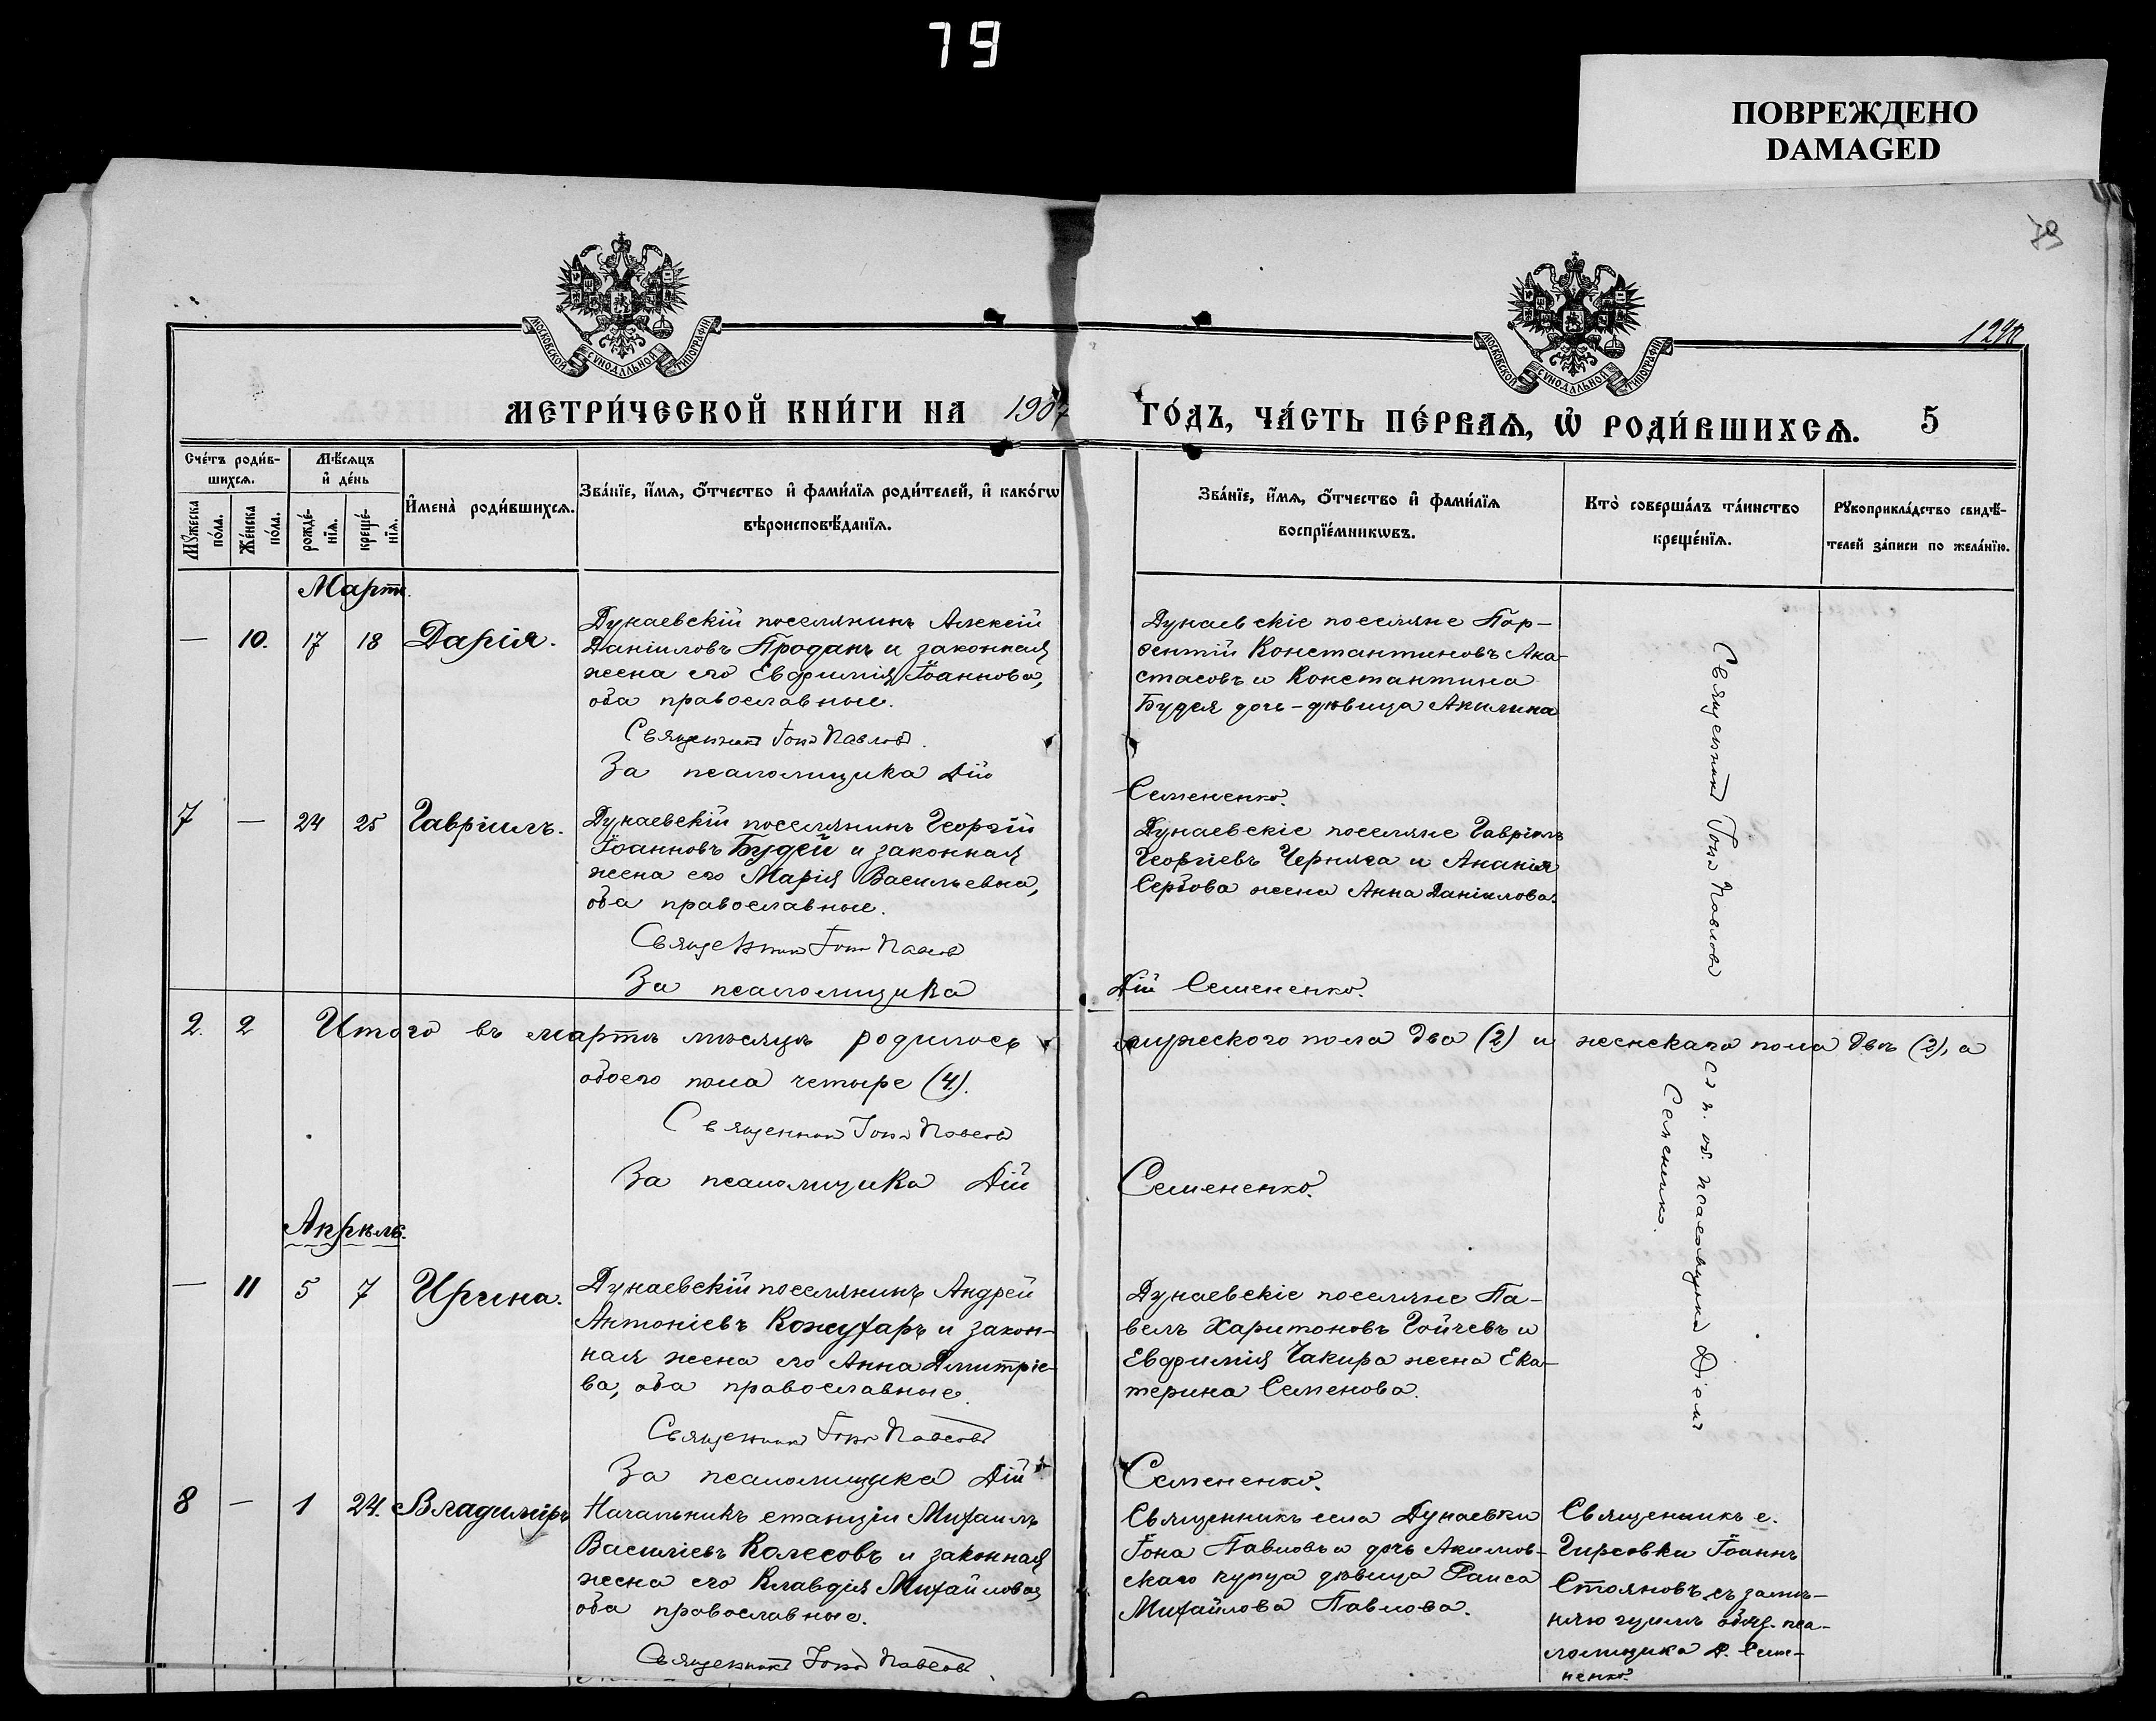 79
ПОВРЕЖДЕНО
DAMAGED
79
МОСКОВСКОЙ СѴНОДАЛЬНОЙ ТИПОГРАФІИ
МОСКОВСКОЙ СѴНОДАЛЬНОЙ ТИПОГРАФІИ
МЕТРИ́ЧЕСКОЙ КНИ́ГИ НА 1907
ГО́ДЪ, ЧА́СТЬ ПЕ́РВАѦ, Ѡ҆ РОДИ́ВШИХСѦ. 5
Сче́тъ роди́в-
шихсѧ.
Мѣ́сѧцъ
и҆ де́нь
Мꙋ́жеска
по́ла.
Же́нска
по́ла.
рожде́-
нїѧ.
креще́-
нїѧ.
И҆мена̀ роди́вшихсѧ.
Зва́нїе, и҆́мѧ, ѻ҆́тчество и҆ фами́лїѧ роди́телей, и҆ како́гѡ
вѣроисповѣ́данїѧ.
Зва́нїе, и҆́мѧ, ѻ҆́тчество и҆ фами́лїѧ
воспрїе́мникѡвъ.
Кто̀ соверша́лъ та́инство
креще́нїѧ.
Рꙋкоприкла́дство свидѣ́-
телей за́писи по жела́нїю.
Мартъ.
— 10. 17 18 Дарія.
Дунаевскій поселянинъ Алексій
Даніиловъ Проданъ и законная
жена его Евфимія Іоаннова,
оба православные.
Священникъ Іона Павловъ.
За псаломщика Дій
Дунаевскіе поселяне Пар-
фентій Константиновъ Ана-
стасовъ и Константина
Будея дочь-дѣвица Акилина
Семененко.
Священникъ Іона Павловъ
7 — 24 25 Гавріилъ.
Дунаевскій поселянинъ Георгій
Іоанновъ Будей и законная
жена его Марія Васильевна,
оба православные.
Священникъ Іона Павловъ
За псаломщика
Дунаевскіе поселяне Гавріилъ
Георгіевъ Черняга и Ананія
Сербова жена Анна Даніилова.
Дій Семененко.
2. 2 Итого въ мартѣ мѣсяцѣ родилось
мужеского пола два (2) и женскаго пола двѣ (2), а
обоего пола четыре (4).
Священникъ Іона Павловъ
За псаломщика Дій
Семененко.
съ и. об. псаломщика Діемъ
Семененко.
Апрѣль.
— 11 5 7 Ирина.
Дунаевскій поселянинъ Андрей
Антоніевъ Кожухарь и закон-
ная жена его Анна Дмитріе-
ва, оба православные.
Священникъ Іона Павловъ
За псаломщика Дій
Дунаевскіе поселяне Па-
велъ Харитоновъ Гойчевъ и
Евфимія Чакира жена Ека-
терина Семенова.
Семененко.
8 — 1 24. Владиміръ
Начальникъ станціи Михаилъ
Васильевъ Колесовъ и законная
жена его Клавдія Михайлова,
оба православные.
Священникъ Іона Павловъ
Священникъ села Дунаевки
Іона Павловъ и дочь Акимов-
скаго купца дѣвица Раиса
Михайлова Павлова.
Священникъ с.
Гирсовки Іоаннъ
Стояновъ съ замѣ-
няющимъ обяз. пса-
ломщика Д. Семе-
ненко.